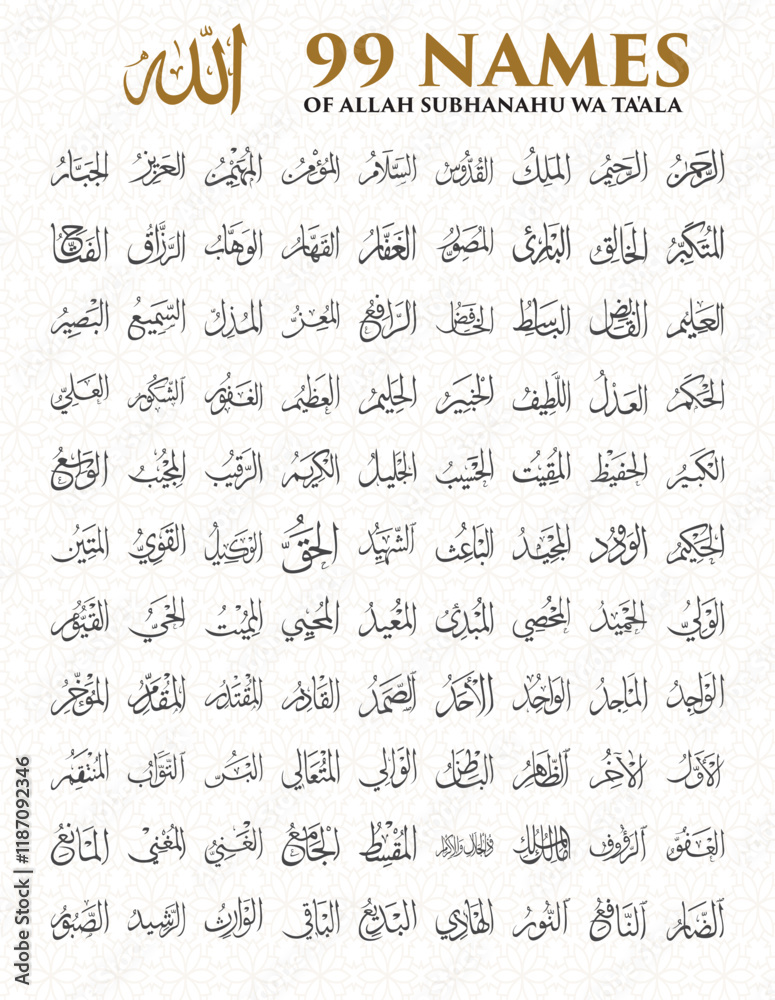 الله
99 NAMES
OF ALLAH SUBHANAHU WA TA'ALA
الرحمن الرحيم الملك القدوس السلام المؤمن المهيمن العزيز الجبار
المتكبر الخالق البارئ المصور الغفار القهار الوهاب الرزاق الفتاح
العليم القابض الباسط الخافض الرافع المعز المذل السميع البصير
الحكم العدل اللطيف الخبير الحليم العظيم الغفور الشكور العلي
الكبير الحفيظ المقيت الحسيب الجليل الكريم الرقيب المجيب الواسع
الحكيم الودود المجيد الباعث الشهيد الحق الوكيل القوي المتين
الولي الحميد المحصي المبدئ المعيد المحيي المميت الحي القيوم
الواجد الماجد الواحد الأحد الصمد القادر المقتدر المقدم المؤخر
الأول الآخر الظاهر الباطن الوالي المتعالي البر التواب المنتقم
العفو الرؤوف مالك الملك ذو الجلال والإكرام المقسط الجامع الغني المغني المانع
الضار النافع النور الهادي البديع الباقي الوارث الرشيد الصبور
Adobe Stock | #1187092346